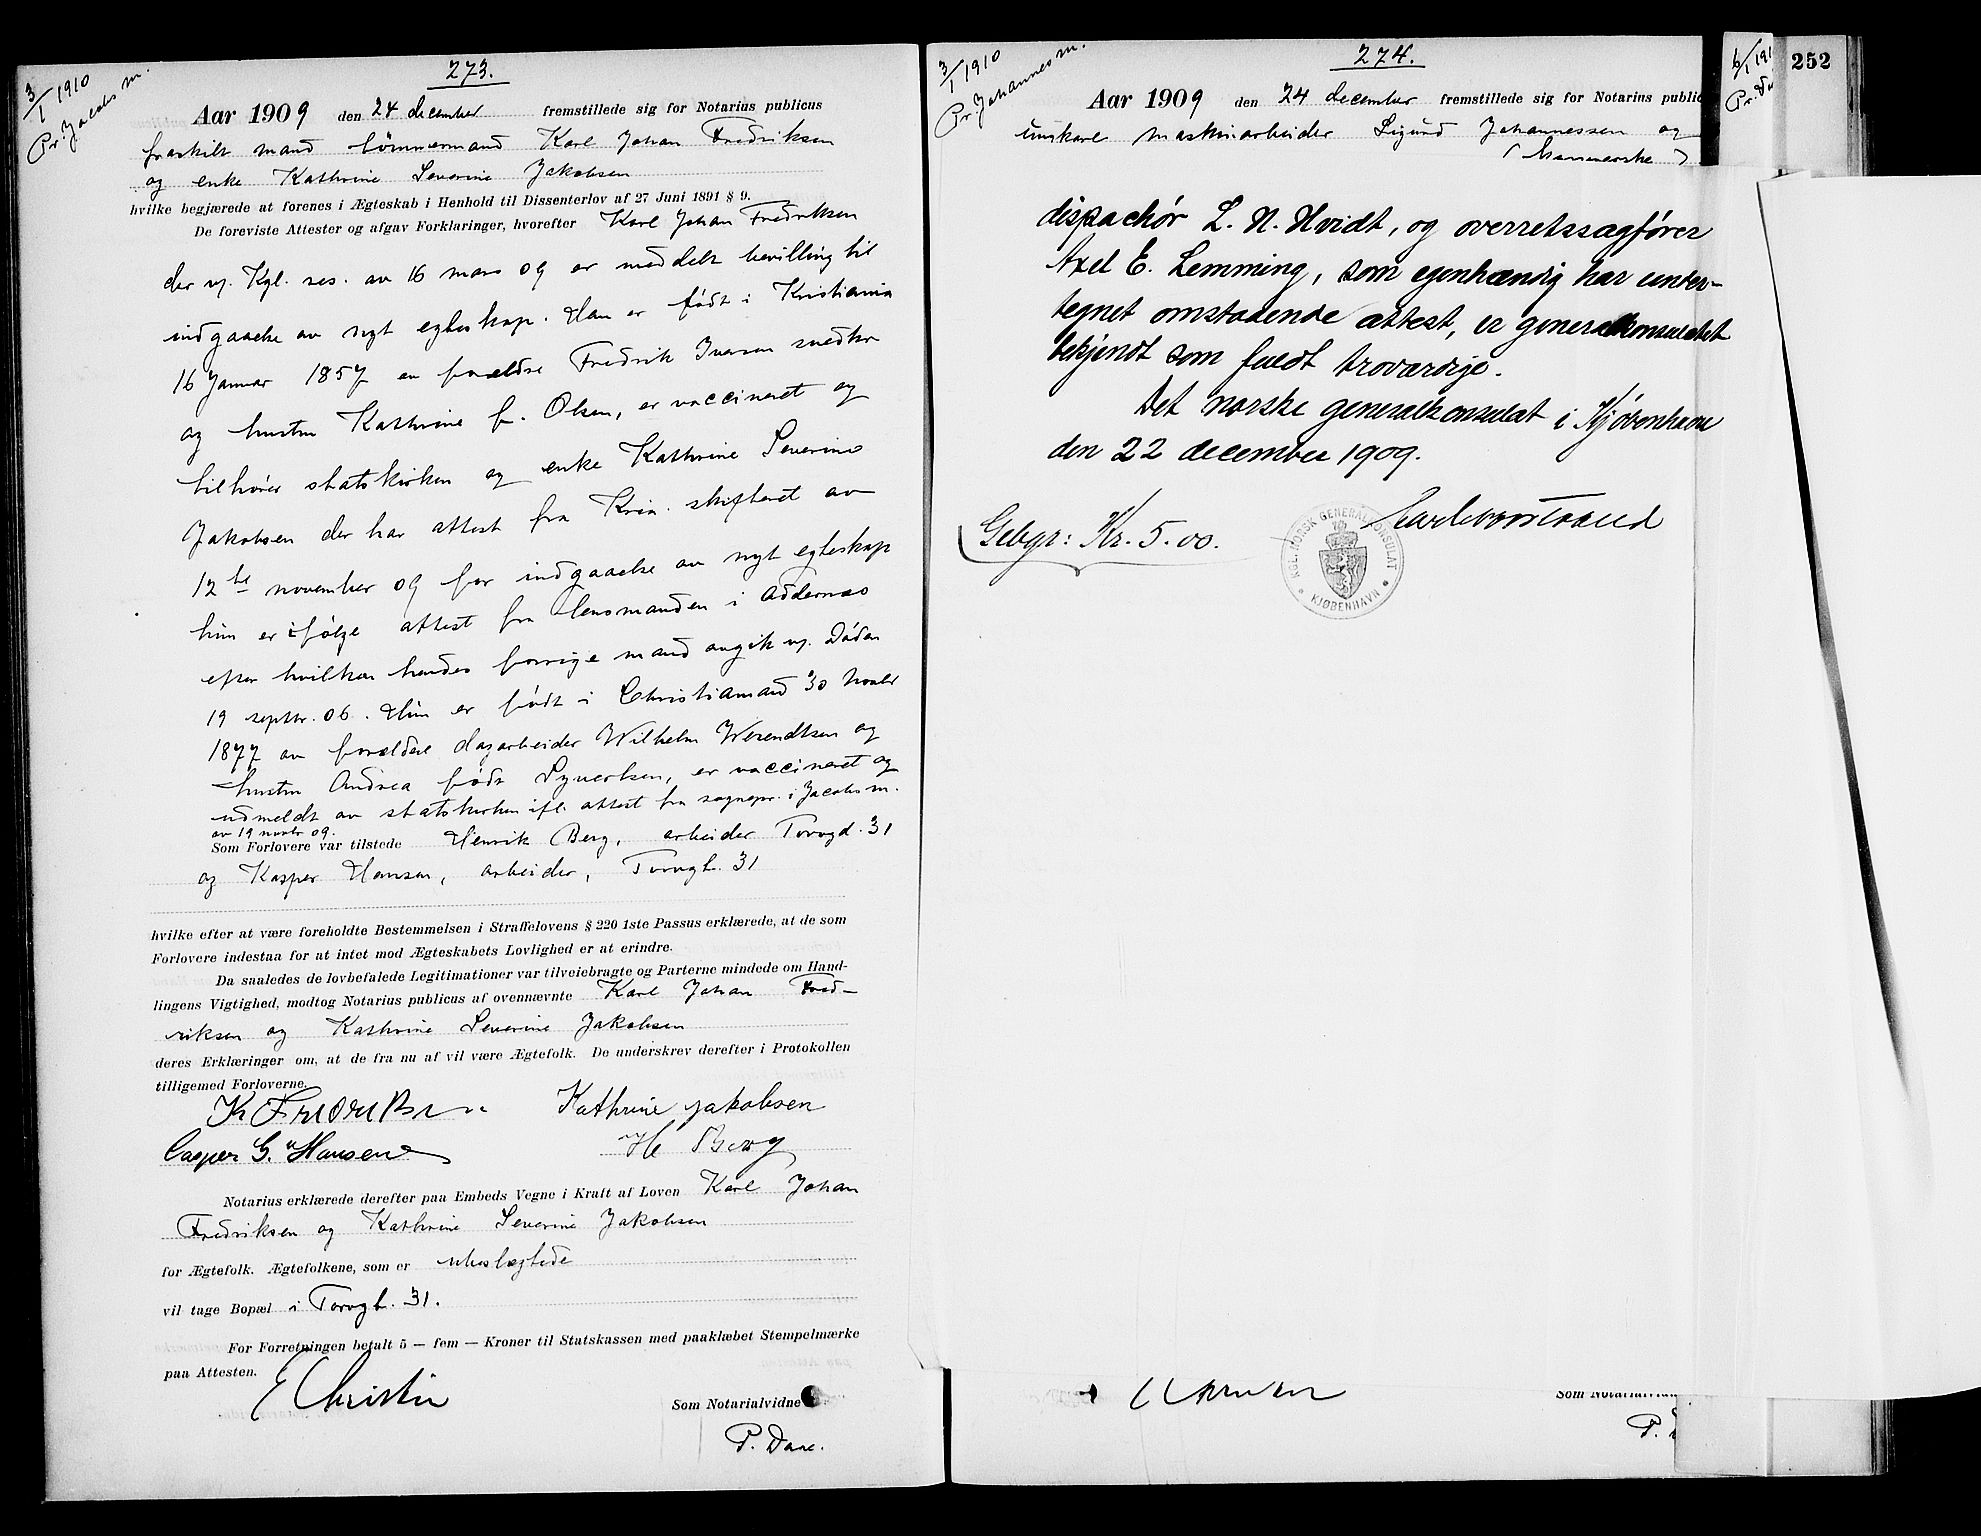 3/1 1910
Pr. Jacobs m.
273.
Aar 1909 den 24 december fremstillede sig for Notarius publicus
fraskilt mand tømmermand Karl Johan Fredriksen
og enke Kathrine Severine Jakobsen
hvilke begjærede at forenes i Ægteskab i Henhold til Dissenterlov af 27 Juni 1891 § 9.
De foreviste Attester og afgav Forklaringer, hvorefter Karl Johan Fredriksen
der v. Kgl. res. av 16 mars 09 er meddelt bevilling til
indgaaelse av nyt egteskap. Han er født i Kristiania
16 Januar 1857 av forældre Fredrik Iversen snedker
og hustru Kathrine f. Olsen, er vaccineret og
tilhører statskirken og enke Kathrine Severine
Jakobsen der har attest fra Kria. skifteret av
12te november 09 for indgaaelse av nyt egteskap
hun er ifølge attest fra lensmanden i Oddernes
efter hvilken hendes forrige mand avgik v. Døden
19 septbr. 06. Hun er født i Christiansand 30 novbr
1877 av forældre dagarbeider Wilhelm Werendtsen og
hustru Andrea født Syvertsen, er vaccineret og
udmeldt av statskirken ifl. attest fra sognepr. i Jacobs m.
av 19 novbr 09.
Som Forlovere var tilstede Henrik Berg, arbeider Torvgd. 31
og Kasper Hansen, arbeider, Torvgt. 31
hvilke efter at være foreholdte Bestemmelsen i Straffelovens § 220 1ste Passus erklærede, at de som
Forlovere indestaa for at intet mod Ægteskabets Lovlighed er at erindre.
Da saaledes de lovbefalede Legitimationer var tilveiebragte og Parterne mindede om Hand-
lingens Vigtighed, modtog Notarius publicus af ovennævnte Karl Johan Fred-
riksen og Kathrine Severine Jakobsen
deres Erklæringer om, at de fra nu af vil være Ægtefolk. De underskrev derefter i Protokollen
tilligemed Forloverne.
K Frederiksen Kathrine Jakobsen
Casper G. Hansen H Berg
Notarius erklærede derefter paa Embeds Vegne i Kraft af Loven Karl Johan
Fredriksen og Kathrine Severine Jakobsen
for Ægtefolk. Ægtefolkene, som er ubeslegtede
vil tage Bopæl i Torvgt. 31.
For Forretningen betalt 5 — fem — Kroner til Statskassen med paaklæbet Stempelmærke
paa Attesten.
E Christie
Som Notarialvidne
P. Dane.
3/1 1910
Pr. Johannes m.
274.
Aar 1909 den 24 december fremstillede sig for Notarius public
unikarl maskinarbeider Sigurd Johannessen og
dispachør L. N. Hvidt, og overretssagfører
Axel E. Lemming, som egenhændig har under-
tegnet omstaaende attest, er generalkonsulatet
bekjendt som fuldt troværdige.
Det norske generalkonsulat i Kjøbenhavn
den 22 december 1909.
Gebyr: Kr. 5.00.
KGL. NORSK GENERALKONSULAT
KJØBENHAVN
Som Notarialvidn
P.
/1 191
Pr.
252